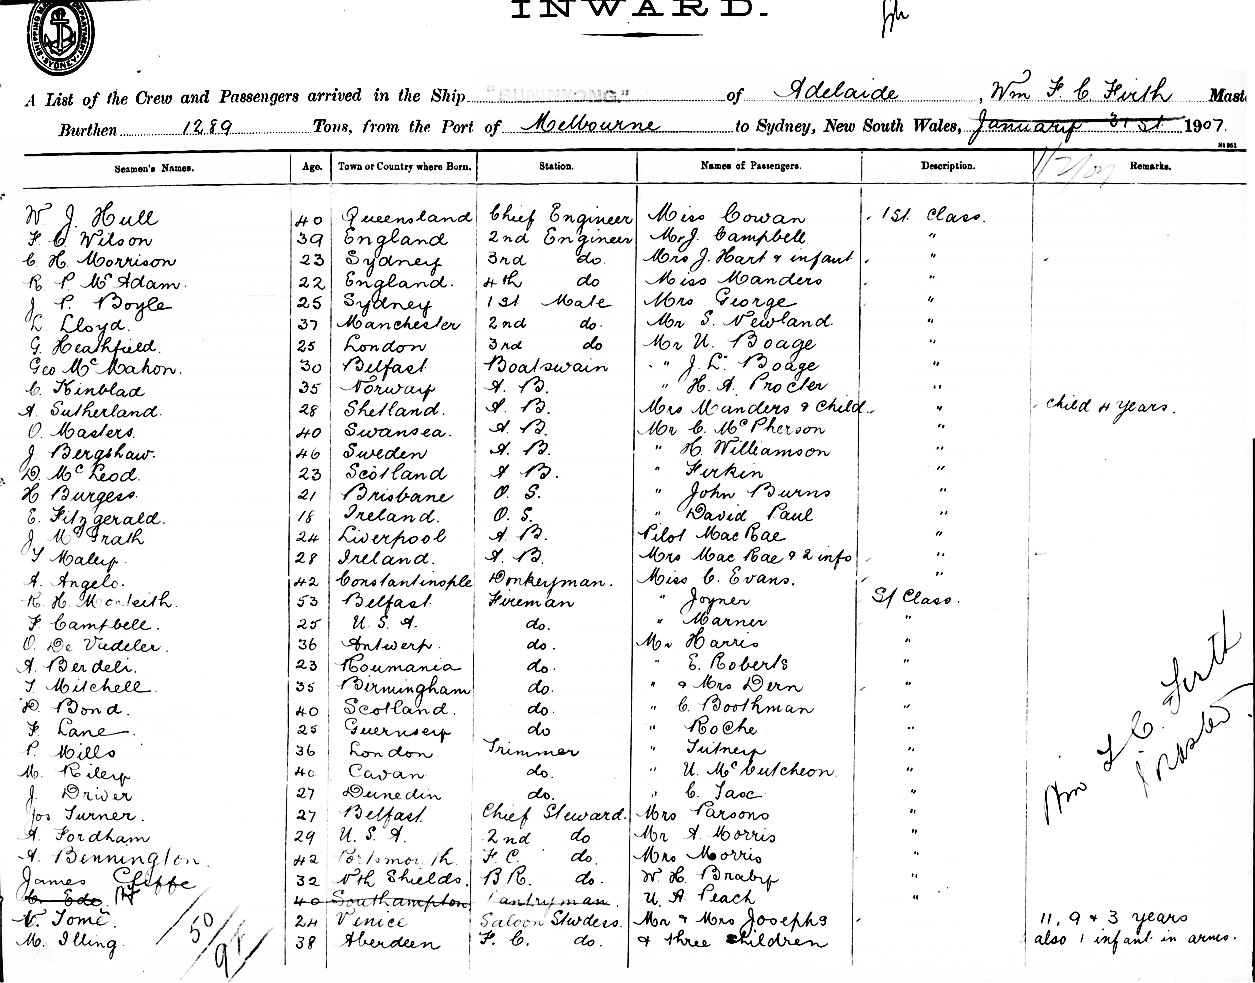 INWARD.
A List of the Crew and Passengers arrived in the Ship "BUNINYONG" of Adelaide, Wm F. C Firth Mast
Burthen 1289 Tons, from the Port of Melbourne to Sydney, New South Wales, January 31st 1907.
Seamen's Names. Age. Town or Country where Born. Station. Names of Passengers. Description. 1/2/07 Remarks.
W J. Hull 40 Queensland Chief Engineer Miss Cowan 1st Class.
F C Wilson 39 England 2nd Engineer Mr J. Campbell "
C H. Morrison 23 Sydney 3rd do. Mrs J. Hart & infant "
R P McAdam. 22 England. 4th do Miss Manders "
J P. Boyle 25 Sydney 1st Mate Mrs George "
L Lloyd. 37 Manchester 2nd do. Mr S. Newland. "
G. Heathfield. 25 London 3rd do Mr U. Boage "
Geo McMahon. 30 Belfast Boatswain " J. L. Boage "
C. Kinblad 35 Norway A. B. " H. A. Procter "
A. Sutherland. 28 Shetland. A. B. Mrs Manders & Child. " Child 4 Years.
O. Masters. 40 Swansea. A. B. Mr C. McPherson "
J Bergshaw. 46 Sweden A. B. " H. Williamson "
D. McLeod. 23 Scotland A B. " Firkin "
H Burgess. 21 Brisbane O. S. " John Burns "
E. Fitzgerald. 18 Ireland. O. S. " David Paul "
J McGrath 24 Liverpool A B. Pilot MacRae "
T Maley. 28 Ireland. A. B. Mrs MacRae & 2 infs "
A. Angelo. 42 Constantinople Donkeyman. Miss C. Evans. "
R. H. Monteith. 53 Belfast Fireman " Joyner St Class.
F Campbell. 25 U. S. A. do. " Marner "
O. De Vudeler. 36 Antwerp. do. Mr Harris "
A. Berdeli. 23 Roumania do. " E. Roberts "
T Mitchell. 35 Birmingham do. " & Mrs Dern "
D. Bond. 40 Scotland. do. " C. Boothman "
F Lane. 25 Guernsey do " Roche "
P. Mills 36 London Trimmer " Tutney "
M. Riley 40 Cavan do. " U. McCutcheon. "
J. Driver 27 Dunedin do. " C. "
Jos Turner. 27 Belfast Chief Steward. Mrs Parsons "
A. Fordham 29 U. S. A. 2nd do Mr A. Morris "
A. Bennington. 42 Portsmouth. F. C. do. Mrs Morris "
James Cliffe 32 Nth Shields. B R. do. W H. Braby "
C. Ede. 40 Southampton Pantryman. U. A. Peach "
V. Tomé. 24 Venice Saloon Stwdess. Mr & Mrs Josephs 11, 9 & 3 years
M. Illing. 38 Aberdeen F. C. do. & three children also 1 infant in arms.
50/
Wm F C. Firth
Master